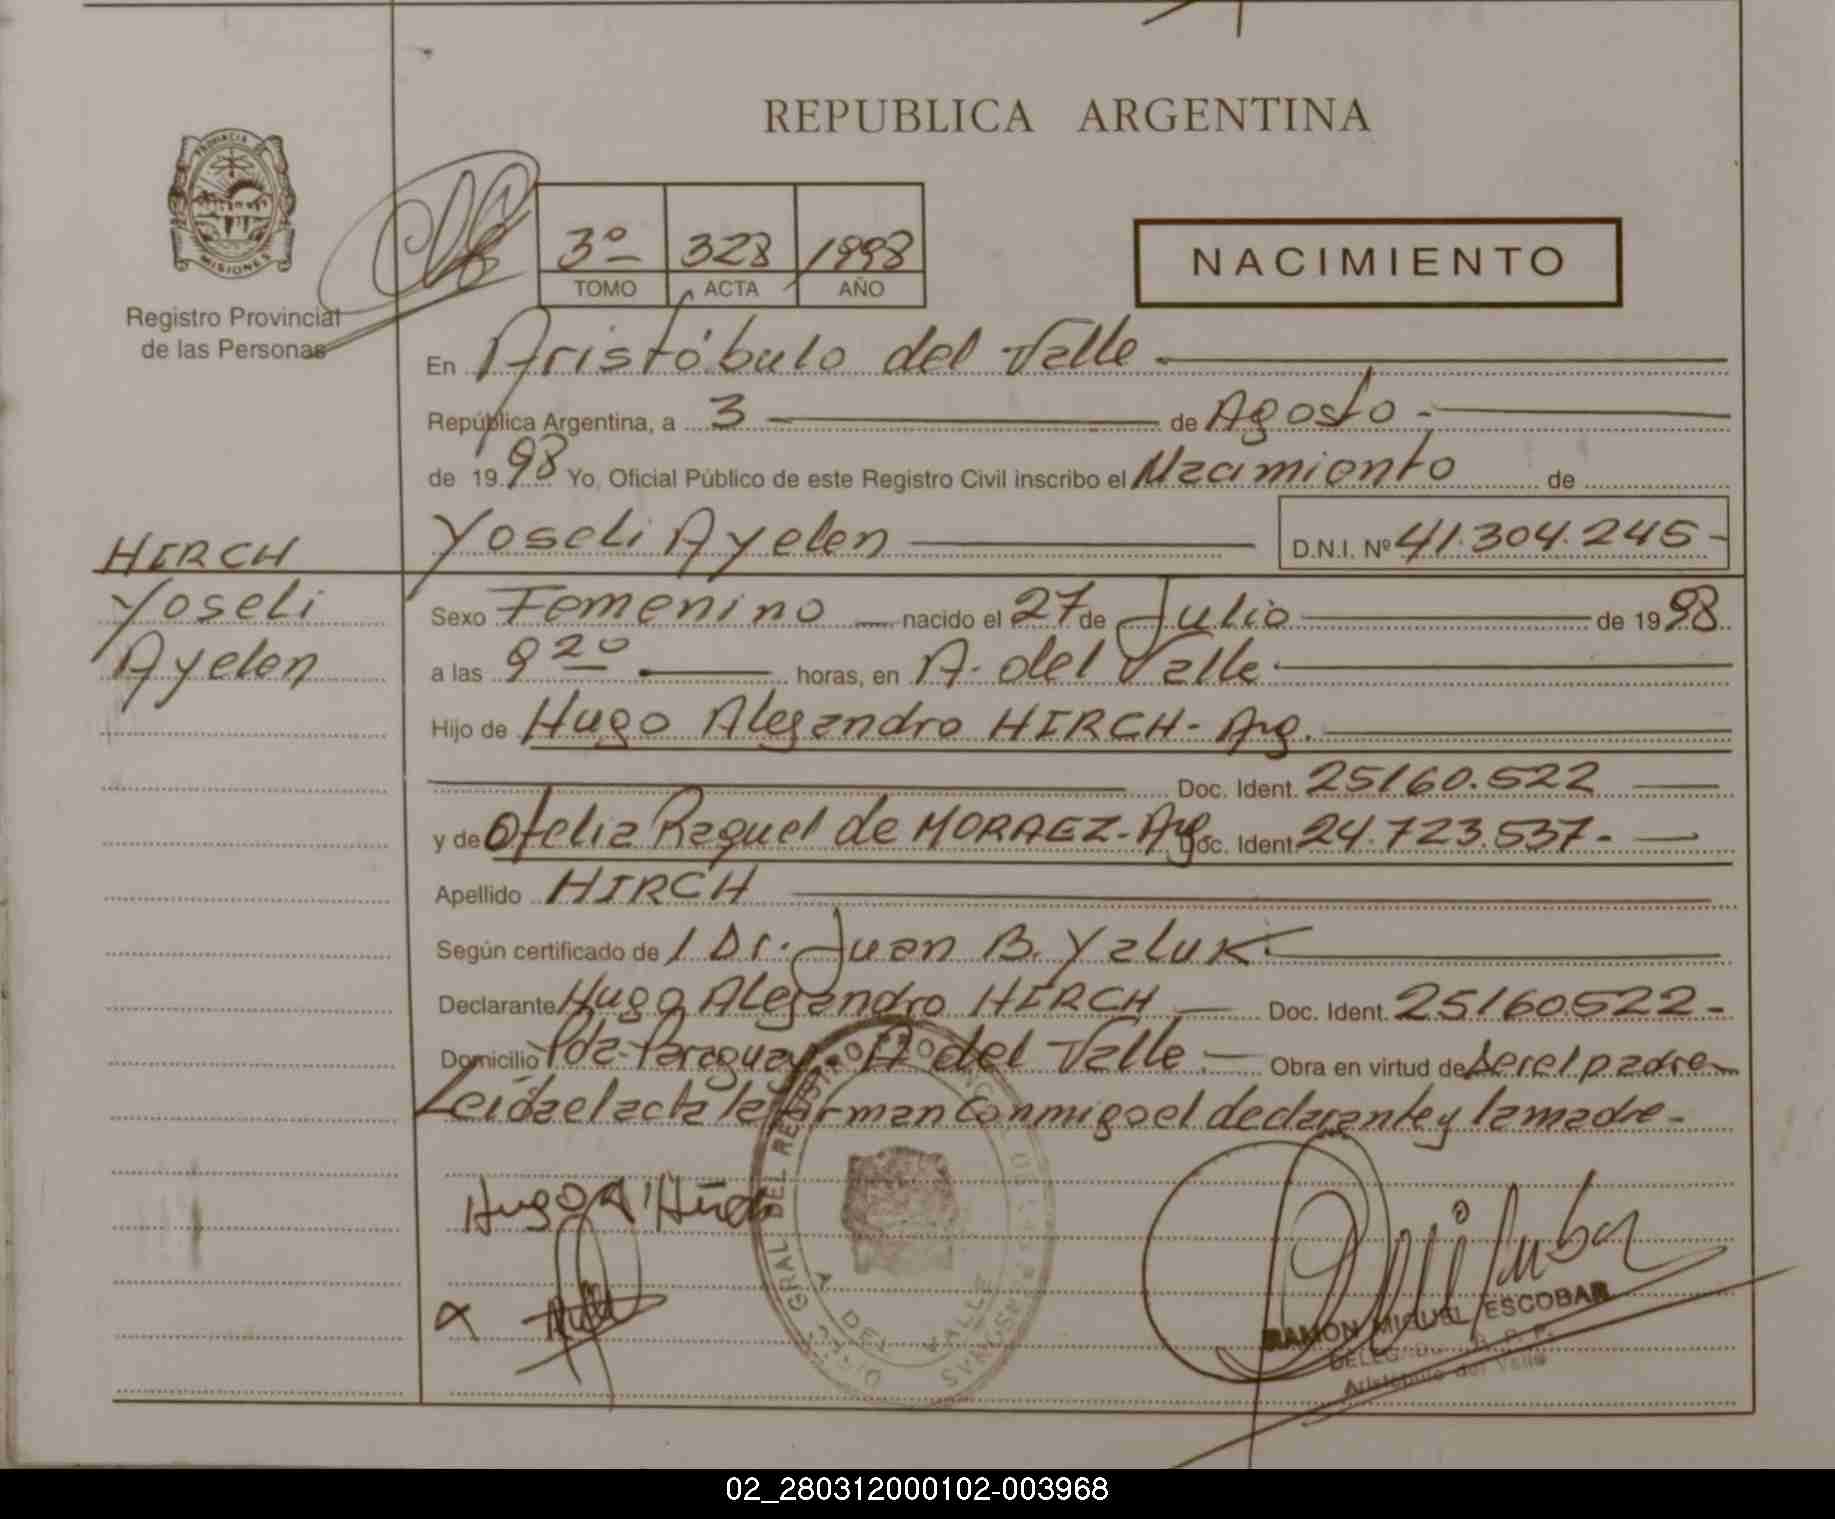 REPUBLICA ARGENTINA
PROVINCIA DE
MISIONES
Registro Provincial
de las Personas
3º 328 1998
TOMO ACTA AÑO
NACIMIENTO
En Aristóbulo del Valle
República Argentina, a 3 de Agosto
de 1998 Yo, Oficial Público de este Registro Civil inscribo el Nacimiento de
Yoseli Ayelen D.N.I. Nº 41.304.245-
HIRCH
Yoseli
Ayelen
Sexo Femenino nacido el 27 de Julio de 1998
a las 9 20 horas, en A. del Valle
Hijo de Hugo Alejandro HIRCH - Arg.
Doc. Ident. 25160.522
y de Ofelia Raquel de MORAEZ - Arg Doc. Ident. 24.723.537-
Apellido HIRCH
Según certificado de 1 Dr. Juan B. Yaluk
Declarante Hugo Alejandro HIRCH Doc. Ident. 25160522-
Domicilio Pda. Paraguay - A del Valle. Obra en virtud de ser el padre
Leída el acta la firman conmigo el declarante y la madre-
Hugo A.
DEL VALLE
RAMON MIGUEL ESCOBAR
DELEG R. P. P.
Aristóbulo del Valle
02_280312000102-003968